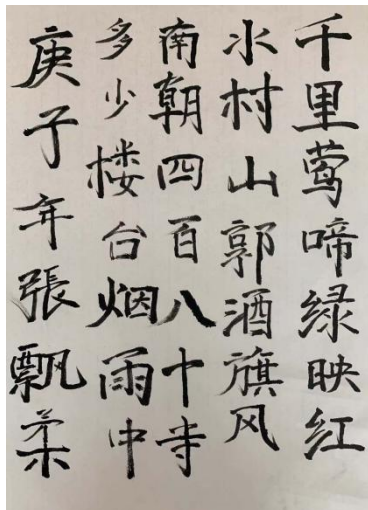 千里莺啼绿映红
水村山郭酒旗风
南朝四百八十寺
多少楼台烟雨中
庚子年張飘柔